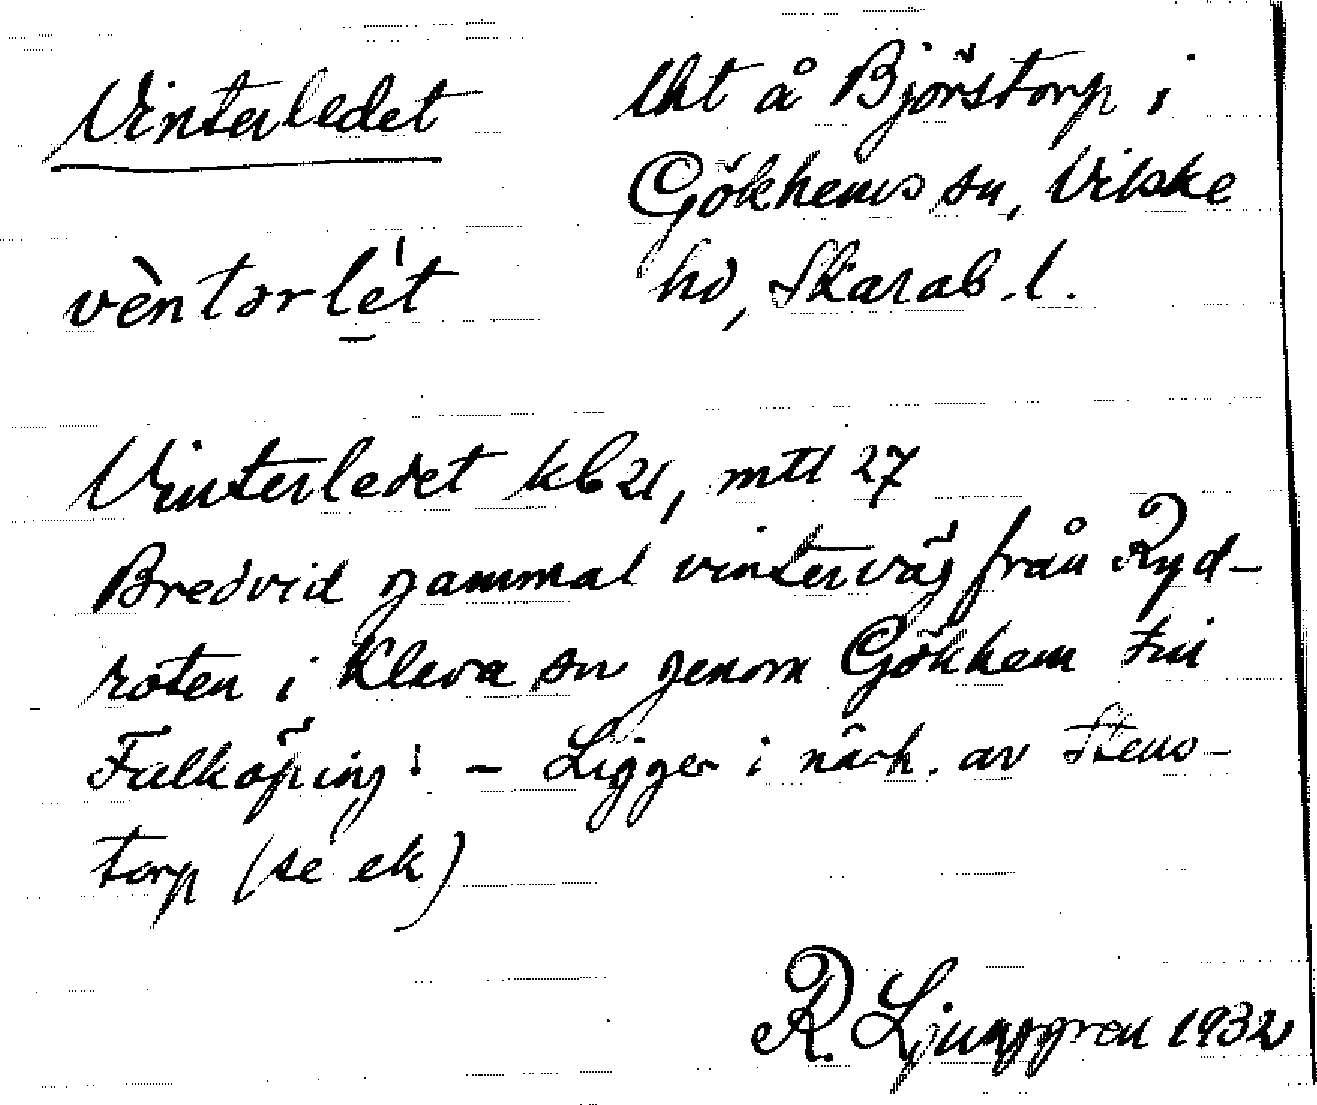 Vinterledet
lht å Björstorp i
Gökhems sn, Vilske
hd, Skarab. l.
vèntərlét
Vinterledet kb 21, mtl 27
Bredvid gammal vinterväg från Ryd-
roten i Kleva sn genom Gökhem till
Falköping! - Ligger i närh. av Stens-
torp (se ek)
R. Ljunggren 1932